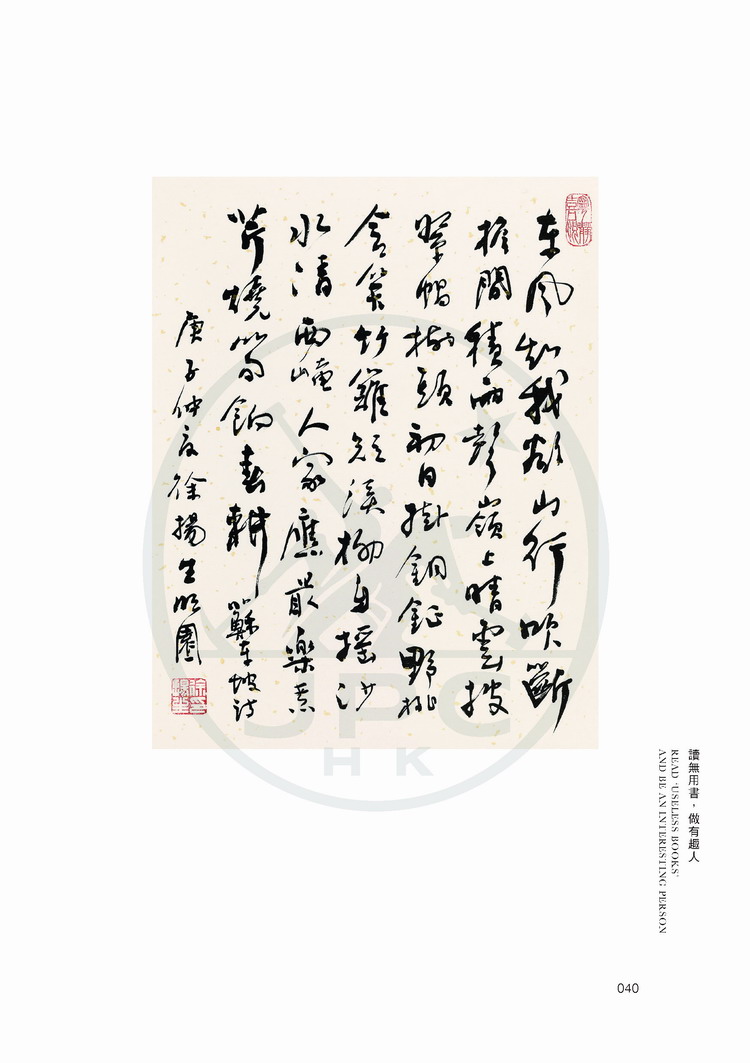 東風知我欲山行吹斷
檐間積雨聲嶺上晴雲披
絮帽樹頭初日掛銅鉦野桃
含笑竹籬短溪柳自搖沙
水清西崦人家應最樂煮
芹燒筍餉春耕 蘇東坡詩
庚子仲夏徐揚生 園
JPC
HK
讀無用書,做有趣人
READ 'USELESS BOOKS'
AND BE AN INTERESTING PERSON
040